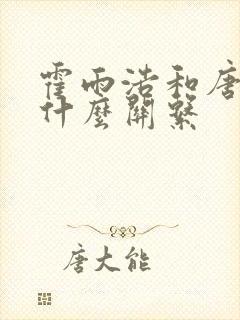 霍雨浩和唐
什麼關繫
唐大能